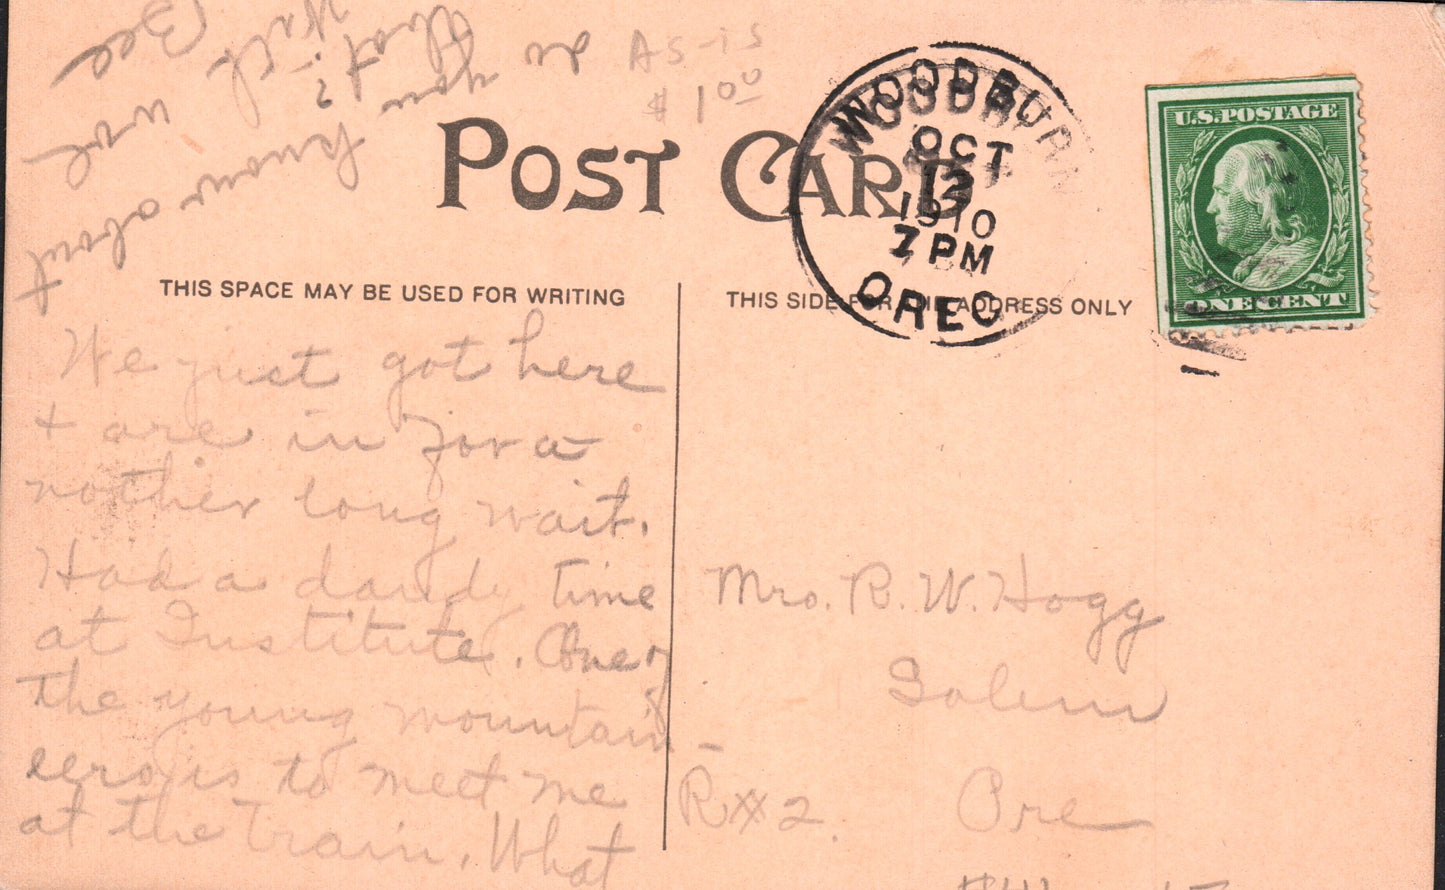 As-is
$1.00
POST CARD
WOODBURN
OCT
1910
7 PM
OREG
U.S. POSTAGE
ONE CENT
THIS SPACE MAY BE USED FOR WRITING
THIS SIDE FOR THE ADDRESS ONLY
We just got here
+ are in for a
nother long wait.
Had a dandy time
at Institute. One of
the young mountain-
eers is to meet me
at the train. What
do you
know about
that?
Bee
Mrs. B. W. Hogg
Salem
R#2. Ore